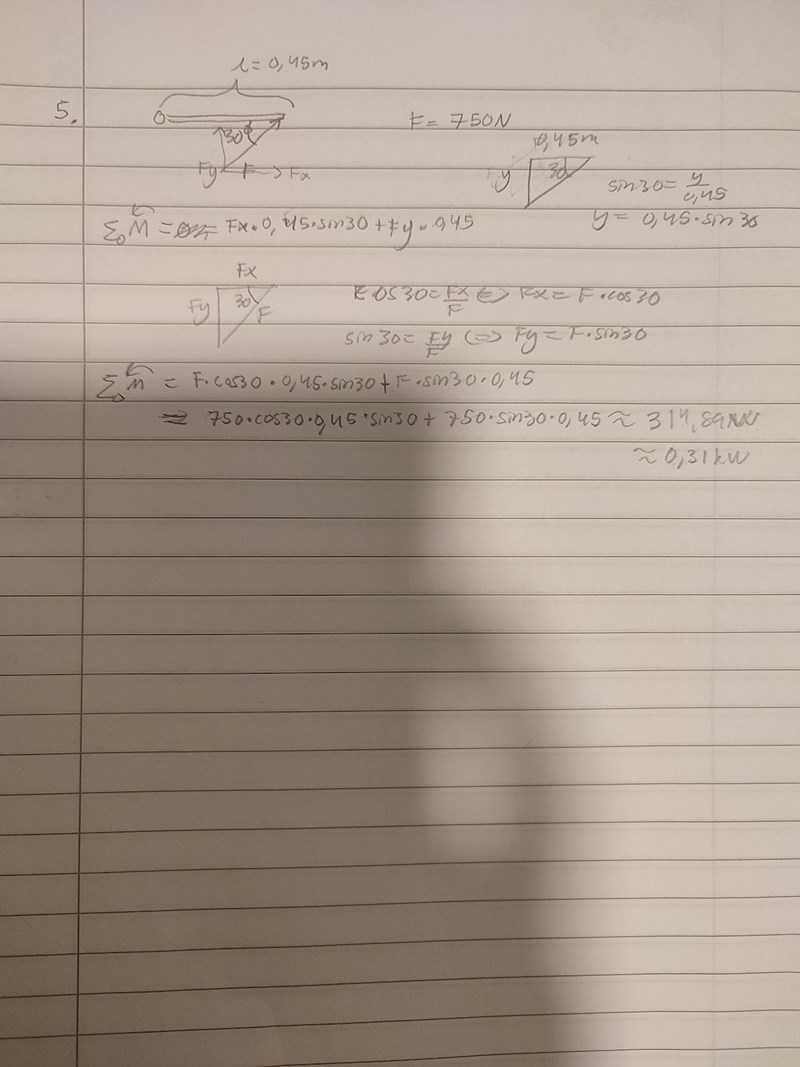 l = 0,45m
5.
O
30°
F = 750N
Fy F Fx
0,45m
y 30
sin30 = y/0,45
y = 0,45·sin30
Σ₀M = Fx·0,45·sin30 + Fy·0,45
Fx
Fy 30 F
cos30 = Fx/F ⇔ Fx = F·cos30
sin30 = Fy/F ⇔ Fy = F·sin30
Σ₀M = F·cos30·0,45·sin30 + F·sin30·0,45
= 750·cos30·0,45·sin30 + 750·sin30·0,45 ≈ 314,89
≈ 0,31